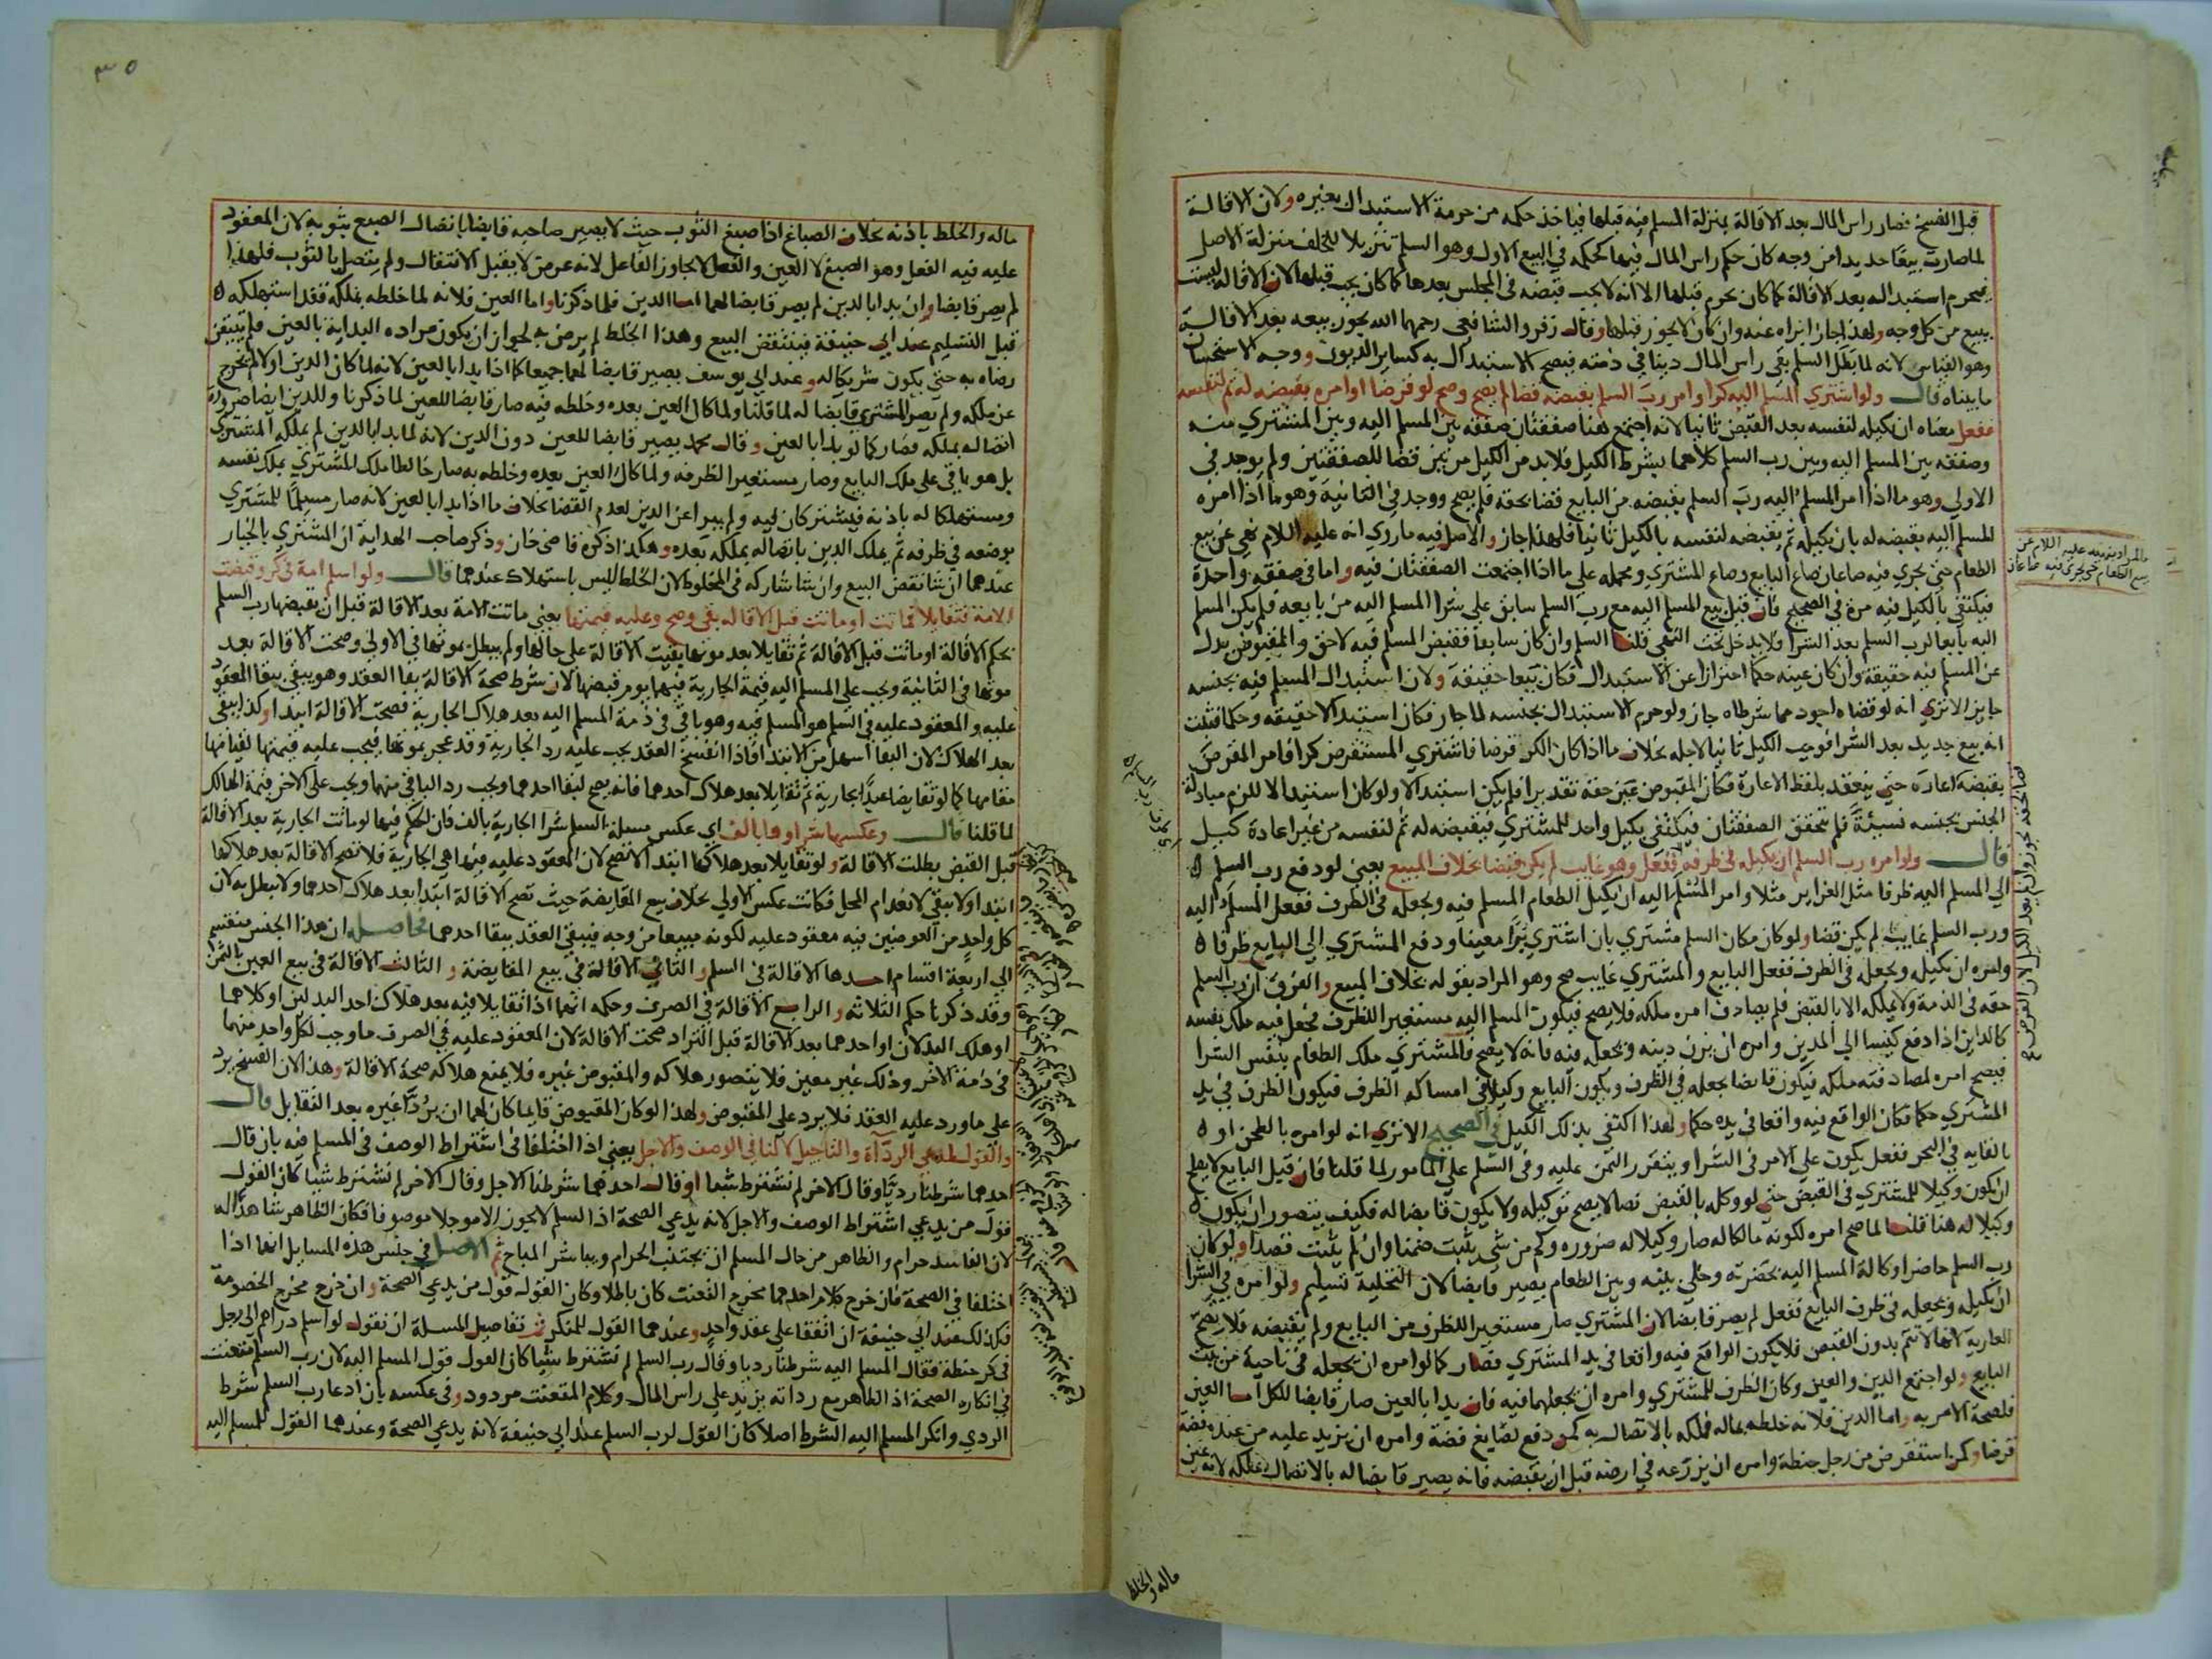 قبل الفسخ فصار راس المال بعد الاقالة بمنزلة المسلم فيه قبلها فياخذ حكمه من حرمة الاستبدال بغيره ولان الاقالة
لما صارت بيعا جديدا من وجه كان حكم راس المال فيها كحكمه في البيع الاول وهو السلم تنزيلا للخلف منزلة الاصل
فيحرم استبداله بعد الاقالة كما كان يحرم قبلها الا انه لا يجب قبضه في المجلس بعدها كما كان يجب قبلها لان الاقالة ليست
ببيع من كل وجه ولهذا جاز ابراه عنه وان كان لا يجوز قبلها وقال زفر والشافعي رحمهما الله يجوز بيعه بعد الاقالة
وهو القياس لانه لما بطل السلم بقى راس المال دينا في ذمته فيصح الاستبدال به كساير الديون ووجه الاستحسان
ما بيناه قال ولو اشتري المسلم اليه كرا وامر رب السلم بقبضه قضا لم يصح وصح لو قرضا او امره بقبضه له ثم لنفسه
ففعل معناه ان يكيله لنفسه بعد القبض ثانيا لانه اجتمع هنا صفقتان صفقة بين المسلم اليه وبين المشتري منه
وصفقة بين المسلم اليه وبين رب السلم كلاهما بشرط الكيل فلا بد من الكيل مرتين قضا للصفقتين ولم يوجد في
الاولي وهو ما اذا امر المسلم اليه رب السلم بقبضه من البايع قضا بحقه فلم يصح ووجد في الثانية وهو ما اذا امره
المسلم اليه بقبضه له بان يكيله ثم يقبضه لنفسه بالكيل ثانيا فلهذا جاز والاصل فيه ما روي انه عليه السلام نهي عن بيع
الطعام حتي يجري فيه صاعان صاع البايع وصاع المشتري ومحمله علي ما اذا اجتمعت الصفقتان فيه واما في صفقة واحدة
فيكتفي بالكيل فيه مرة في الصحيح فان قيل بيع المسلم اليه مع رب السلم سابق علي شرا المسلم اليه من بايعه فلم يكن المسلم
اليه بايعا لرب السلم بعد الشرا فلا يدخل تحت النهي قلنا السلم وان كان سابقا فقبض المسلم فيه لاحق والمقبوض بدل
عن المسلم فيه حقيقة وان كان عينه حكما احترازا عن الاستبدال فكان بيعا حقيقة ولان استبدال المسلم فيه بجنسه
جايز الا تري انه لو قضاه اجود مما شرطاه جاز ولو حرم الاستبدال بجنسه لما جاز فكان استبدالا حقيقة وحكما فثبت
انه بيع جديد بعد الشرا فوجب الكيل ثانيا لاجله بخلاف ما اذا كان الكر قرضا فاشتري المستقرض كرا فامر المقرض
بقبضه اعارة حتي ينعقد بلفظ الاعارة فكان المقبوض عين حقه تقديرا فلم يكن استبدالا ولو كان استبدالا للزم مبادلة
الجنس بجنسه نسيئة فلم تتحقق الصفقتان فيكتفي بكيل واحد للمشتري فيقبضه له ثم لنفسه من غير اعادة كيل
قال ولو امره رب السلم ان يكيله في ظرفه ففعل وهو غايب لم يكن قبضا بخلاف المبيع يعني لو دفع رب السلم
الي المسلم اليه ظرفا مثل الغراير مثلا وامر المسلم اليه ان يكيل الطعام المسلم فيه ويجعله في الظرف ففعل المسلم اليه
ورب السلم غايب لم يكن قضا ولو كان مكان السلم مشتري بان اشتري برا معينا ودفع المشتري الي البايع ظرفا
وامره ان يكيله ويجعله في الظرف ففعل البايع والمشتري غايب صح وهو المراد بقوله بخلاف المبيع والفرق ان رب السلم
حقه في الذمة ولا يملكه الا بالقبض فلم يصادف امره ملكه فلا يصح فيكون المسلم اليه مستعيرا للظرف فجعل فيه ملك نفسه
كالداين اذا دفع كيسا الي المدين وامره ان يزن دينه ويجعله فيه فانه لا يصح والمشتري ملك الطعام بنفس الشرا
فيصح امره لمصادفته ملكه فيكون قابضا بجعله في الظرف ويكون البايع وكيلا في امساك الظرف فيكون الظرف في يد
المشتري حكما فكان الواقع فيه واقعا في يده حكما ولهذا اكتفي بذلك الكيل في الصحيح الا تري انه لو امره بالطحن او
بالقايه في البحر ففعل يكون علي الامر في الشرا ويتقرر الثمن عليه وفي السلم علي المامور لما قلنا فان قيل البايع لا يصلح
ان يكون وكيلا للمشتري في القبض حتي لو وكله بالقبض نصا لا يصح توكيله ولا يكون قابضا له فكيف يتصور ان يكون
وكيلا له هنا قلنا لما صح امره لكونه مالكا له صار وكيلا له ضرورة وكم من شي يثبت ضمنا وان لم يثبت قصدا ولو كان
رب السلم حاضرا وكاله المسلم اليه بحضرته وخلي بينه وبين الطعام يصير قابضا لان التخلية تسليم ولو امره في الشرا
ان يكيله ويجعله في ظرف البايع ففعل لم يصر قابضا لان المشتري صار مستعيرا للظرف من البايع ولم يقبضه فلا يصح
العارية لانها لا تتم بدون القبض فلا يكون الواقع فيه واقعا في يد المشتري فصار كما لو امره ان يجعله في ناحية من بيت
البايع ولو اجتمع الدين والعين وكان الظرف للمشتري وامره ان يجعلهما فيه فان بدا بالعين صار قابضا للكل اما العين
فلصحة الامر به واما الدين فلانه خلطه بماله فملكه بالاتصال به كمن دفع لصايغ فضة وامره ان يزيد عليه من عنده فضة
قرضا وكمن استقرض من رجل حنطة وامره ان يزرعه في ارضه قبل ان يقبضه فانه يصير قابضا له بالاتصال بملكه
ماله والخلط
٣٥
ماله والخلط باذنه بخلاف الصباغ اذا صبغ الثوب حيث لا يصير صاحبه قابضا باتصال الصبغ بثوبه لان المعقود
عليه فيه الفعل وهو الصبغ لا العين والفعل لا يجاوز الفاعل لانه عرض لا يقبل الانتقال ولم يتصل بالثوب فلهذا
لم يصر قابضا وان بدا بالدين لم يصر قابضا لهما اما الدين فلما ذكرنا واما العين فلانه لما خلطه بملكه فقد استهلكه
قبل التسليم عند ابي حنيفة فينتقض البيع وهذا الخلط لم يرض به لجواز ان يكون مراده البداية بالعين فلم يتيقن
رضاه به حتي يكون شريكا له وعند ابي يوسف يصير قابضا لهما جميعا كما اذا بدا بالعين لانه لما كال الدين اولا لم يخرج
عن ملكه ولم يصر المشتري قابضا له لما قلنا ولما كال العين بعده وخلطه فيه صار قابضا للعين لما ذكرنا وللدين ايضا ضرورة
اتصاله بملكه فصار كما لو بدا بالعين وقال محمد يصير قابضا للعين دون الدين لانه لما بدا بالدين لم يملكه المشتري
بل هو باق علي ملك البايع وصار مستعيرا لظرفه ولما كال العين بعده وخلطه به صار خالطا ملك المشتري بملك نفسه
ومستهلكا له باذنه فيشتركان فيه ولم يبرا عن الدين لعدم القضا بخلاف ما اذا بدا بالعين لانه صار مسلما للمشتري
بوضعه في ظرفه ثم يملك الدين باتصاله بملكه بعده وهكذا ذكره قاضي خان وذكر صاحب الهداية ان المشتري بالخيار
عندهما ان شا نقض البيع وان شا شاركه في المخلوط لان الخلط ليس باستهلاك عندهما قال ولو اسلم امة في كر وقبضت
الامة فتقايلا فماتت او ماتت قبل الاقالة بقي وصح وعليه قيمتها يعني ماتت الامة بعد الاقالة قبل ان يقبضها رب السلم
بحكم الاقالة او ماتت قبل الاقالة ثم تقايلا بعد موتها بقيت الاقالة علي حالها ولم يبطل بموتها في الاولي وصحت الاقالة بعد
موتها في الثانية ويجب علي المسلم اليه قيمة الجارية فيهما يوم قبضها لان شرط صحة الاقالة بقا العقد وهو يبقي ببقا المعقود
عليه والمعقود عليه في السلم هو المسلم فيه وهو باقي في ذمة المسلم اليه بعد هلاك الجارية فصحت الاقالة ابتدا وكذا يبقي
بعد الهلاك لان البقا اسهل من الابتدا فاذا انفسخ العقد يجب عليه رد الجارية وقد عجز بموتها فيجب عليه قيمتها لقيامها
مقامها كما لو تقايضا عبدا بجارية ثم تقايلا بعد هلاك احدهما فانه يصح لبقا احدهما ويجب رد الباقي منهما ويجب علي الاخر قيمة الهالك
لما قلنا قال وعكسها شراوها بالف اي عكس مسلة السلم شرا الجارية بالف فان الحكم فيها لو ماتت الجارية بعد الاقالة
قبل القبض بطلت الاقالة ولو تقايلا بعد هلاكها ابتدا لا تصح لان المعقود عليه فيها هي الجارية فلا تصح الاقالة بعد هلاكها
ابتدا ولا يبقي لانعدام المحل فكانت عكس الاولي بخلاف بيع المقايضة حيث تصح الاقالة ابتدا بعد هلاك احدهما ولا يبطل به لان
كل واحد من العوضين فيه معقود عليه لكونه مبيعا من وجه فيبقي العقد ببقا احدهما فحاصله ان هذا الجنس منقسم
الي اربعة اقسام احدها الاقالة في السلم والثاني الاقالة في بيع المقايضة والثالث الاقالة في بيع العين بالثمن
وقد ذكرنا حكم الثلاثة والرابع الاقالة في الصرف وحكمه انهما اذا تقايلا فيه بعد هلاك احد البدلين او كلاهما
او هلك البدلان او احدهما بعد الاقالة قبل التراد صحت الاقالة لان المعقود عليه في الصرف ما وجب لكل واحد منهما
في ذمة الاخر وذلك غير معين فلا يتصور هلاكه والمقبوض غيره فلا يمنع هلاكه صحة الاقالة وهذا لان الفسخ يرد
علي ما ورد عليه العقد فلا يرد علي المقبوض ولهذا لو كان المقبوض قايما كان لهما ان يردا غيره بعد التقايل قال
والقول لمدعي الرداة والتاجيل لا لنافي الوصف والاجل يعني اذا اختلفا في اشتراط الوصف في المسلم فيه بان قال
احدهما شرطنا رديا وقال الاخر لم نشترط شيا او قال احدهما شرطنا الاجل وقال الاخر لم نشترط شيا كان القول
قول من يدعي اشتراط الوصف والاجل لانه يدعي الصحة اذ السلم لا يجوز الا موجلا موصوفا فكان الظاهر شاهدا له
لان الفاسد حرام والظاهر من حال المسلم ان يجتنب الحرام ويباشر المباح ثم الاصل في جنس هذه المسايل انهما اذا
اختلفا في الصحة فان خرج كلام احدهما مخرج التعنت كان باطلا وكان القول قول من يدعي الصحة وان خرج مخرج الخصومة
فكذلك عند ابي حنيفة ان اتفقا علي عقد واحد وعندهما القول للمنكر ثم تفاصيل المسلة ان نقول لو اسلم دراهم الي رجل
في كر حنطة فقال المسلم اليه شرطنا رديا وقال رب السلم لم نشترط شيا كان القول قول المسلم اليه لان رب السلم متعنت
في انكاره الصحة اذ الظاهر مع رداته يزيد علي راس المال وكلام المتعنت مردود وفي عكسه بان ادعا رب السلم شرط
الردي وانكر المسلم اليه الشرط اصلا كان القول لرب السلم عند ابي حنيفة لانه يدعي الصحة وعندهما القول للمسلم اليه